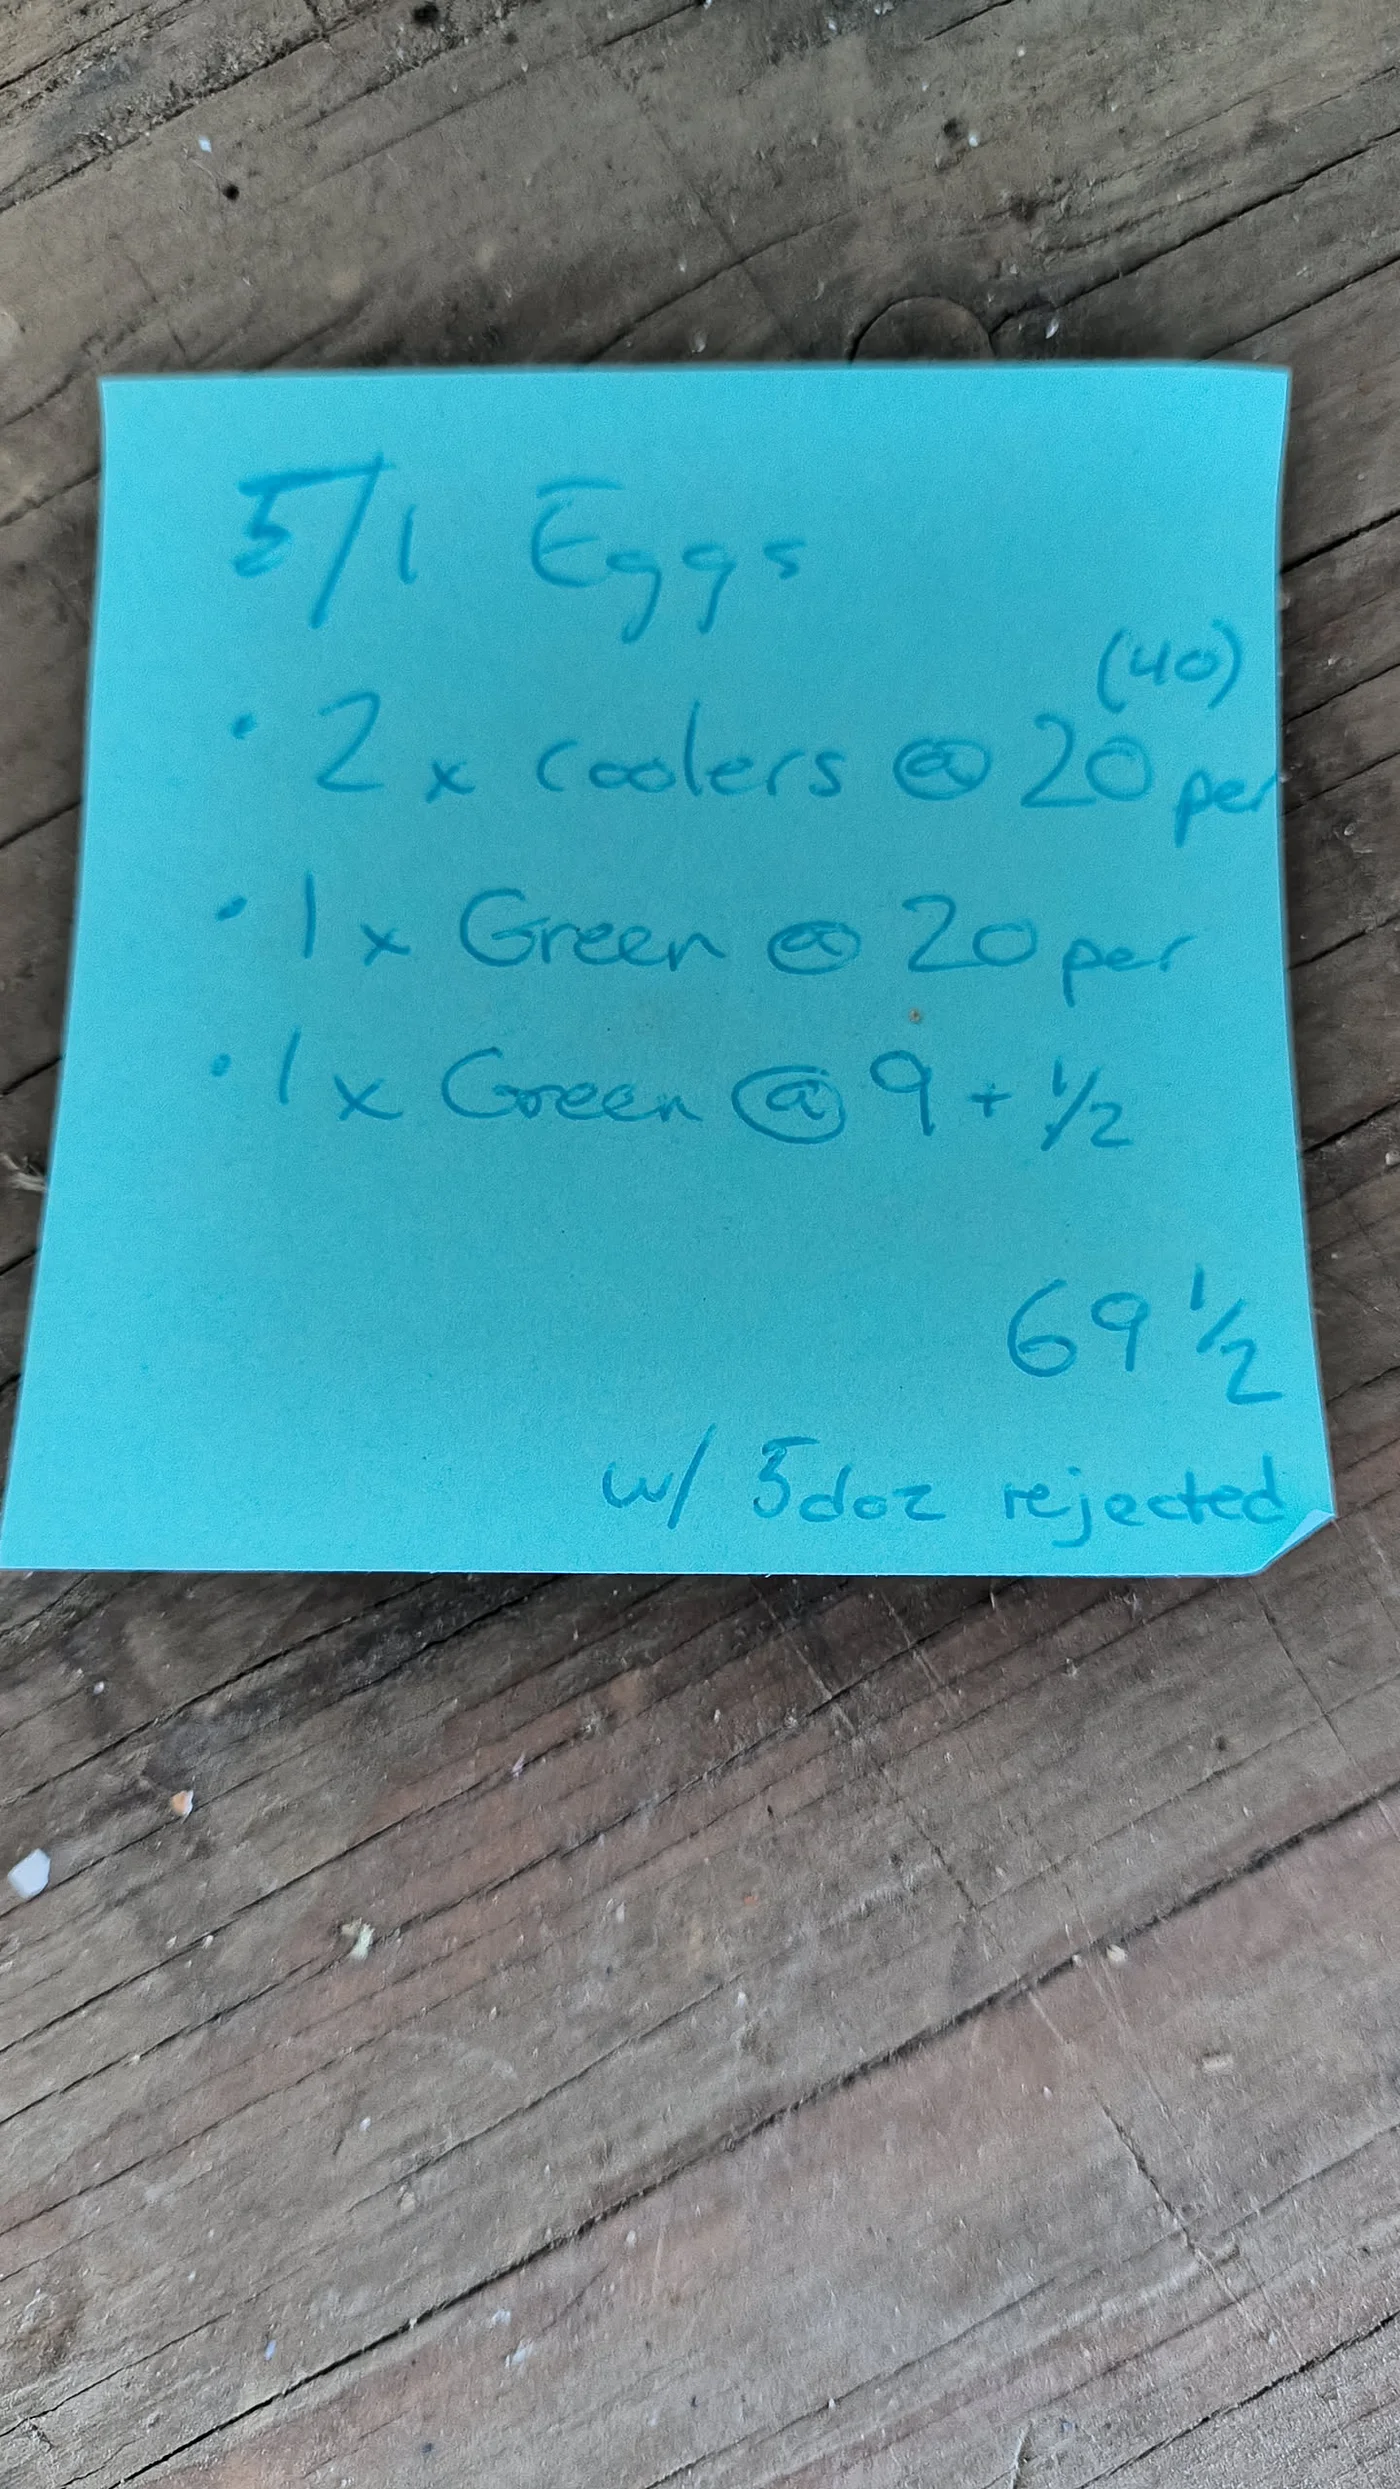 5/1 Eggs
(40)
· 2 x coolers @ 20 per
· 1 x Green @ 20 per
· 1 x Green @ 9 + 1/2
69 1/2
w/ 5doz rejected